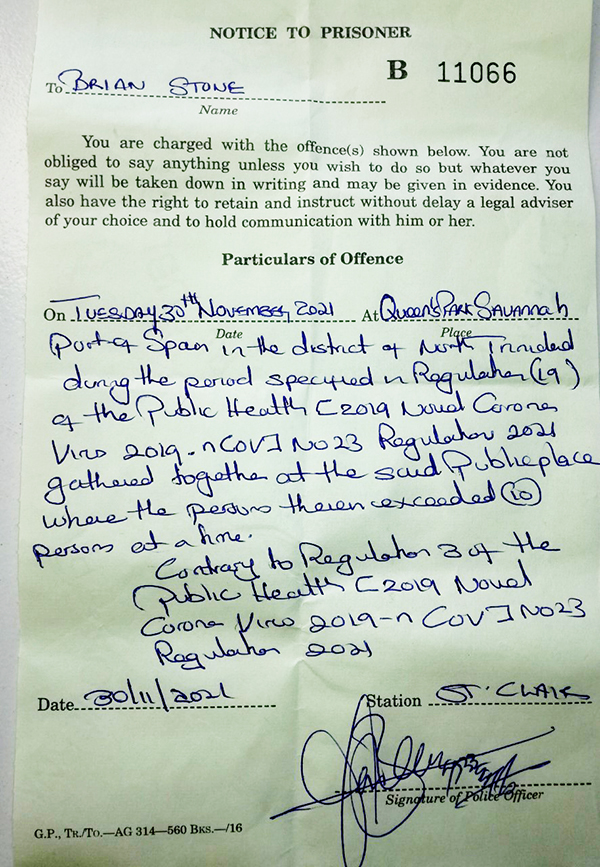 NOTICE TO PRISONER
B 11066
To BRIAN STONE
Name
You are charged with the offence(s) shown below. You are not
obliged to say anything unless you wish to do so but whatever you
say will be taken down in writing and may be given in evidence. You
also have the right to retain and instruct without delay a legal adviser
of your choice and to hold communication with him or her.
Particulars of Offence
On TUESDAY 30th NOVEMBER, 2021 At QUEEN'S PARK SAVANNAH
Date Place
Port of Spain in the district of North Trinidad
during the period specified in Regulation (19)
of the Public Health [2019 Novel Corona
Virus 2019-nCOV] No 23 Regulation 2021
gathered together at the said Public place
where the persons therein exceeded (10)
persons at a time.
Contrary to Regulation 3 of the
Public Health [2019 Novel
Corona Virus 2019-n COV] NO 23
Regulation 2021
Date 30/11/2021 Station ST. CLAIR
Signature of Police Officer
G.P., TR./TO.—AG 314—560 BKS.—/16